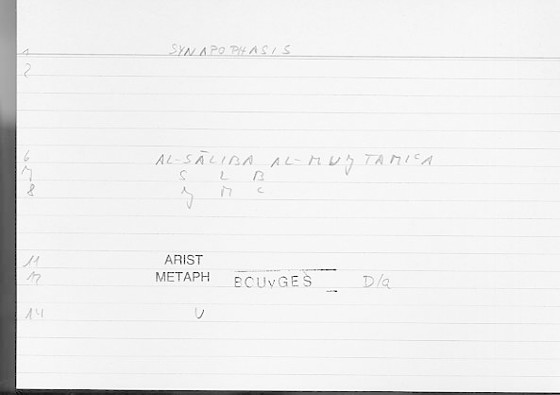 1 SYNAPOPHASIS
2
6 AL-SĀLIBA AL-MUǧTAMIʿA
7 S L B
8 ǧ M ʿ
11 ARIST
12 METAPH BOUYGES D/a
14 V